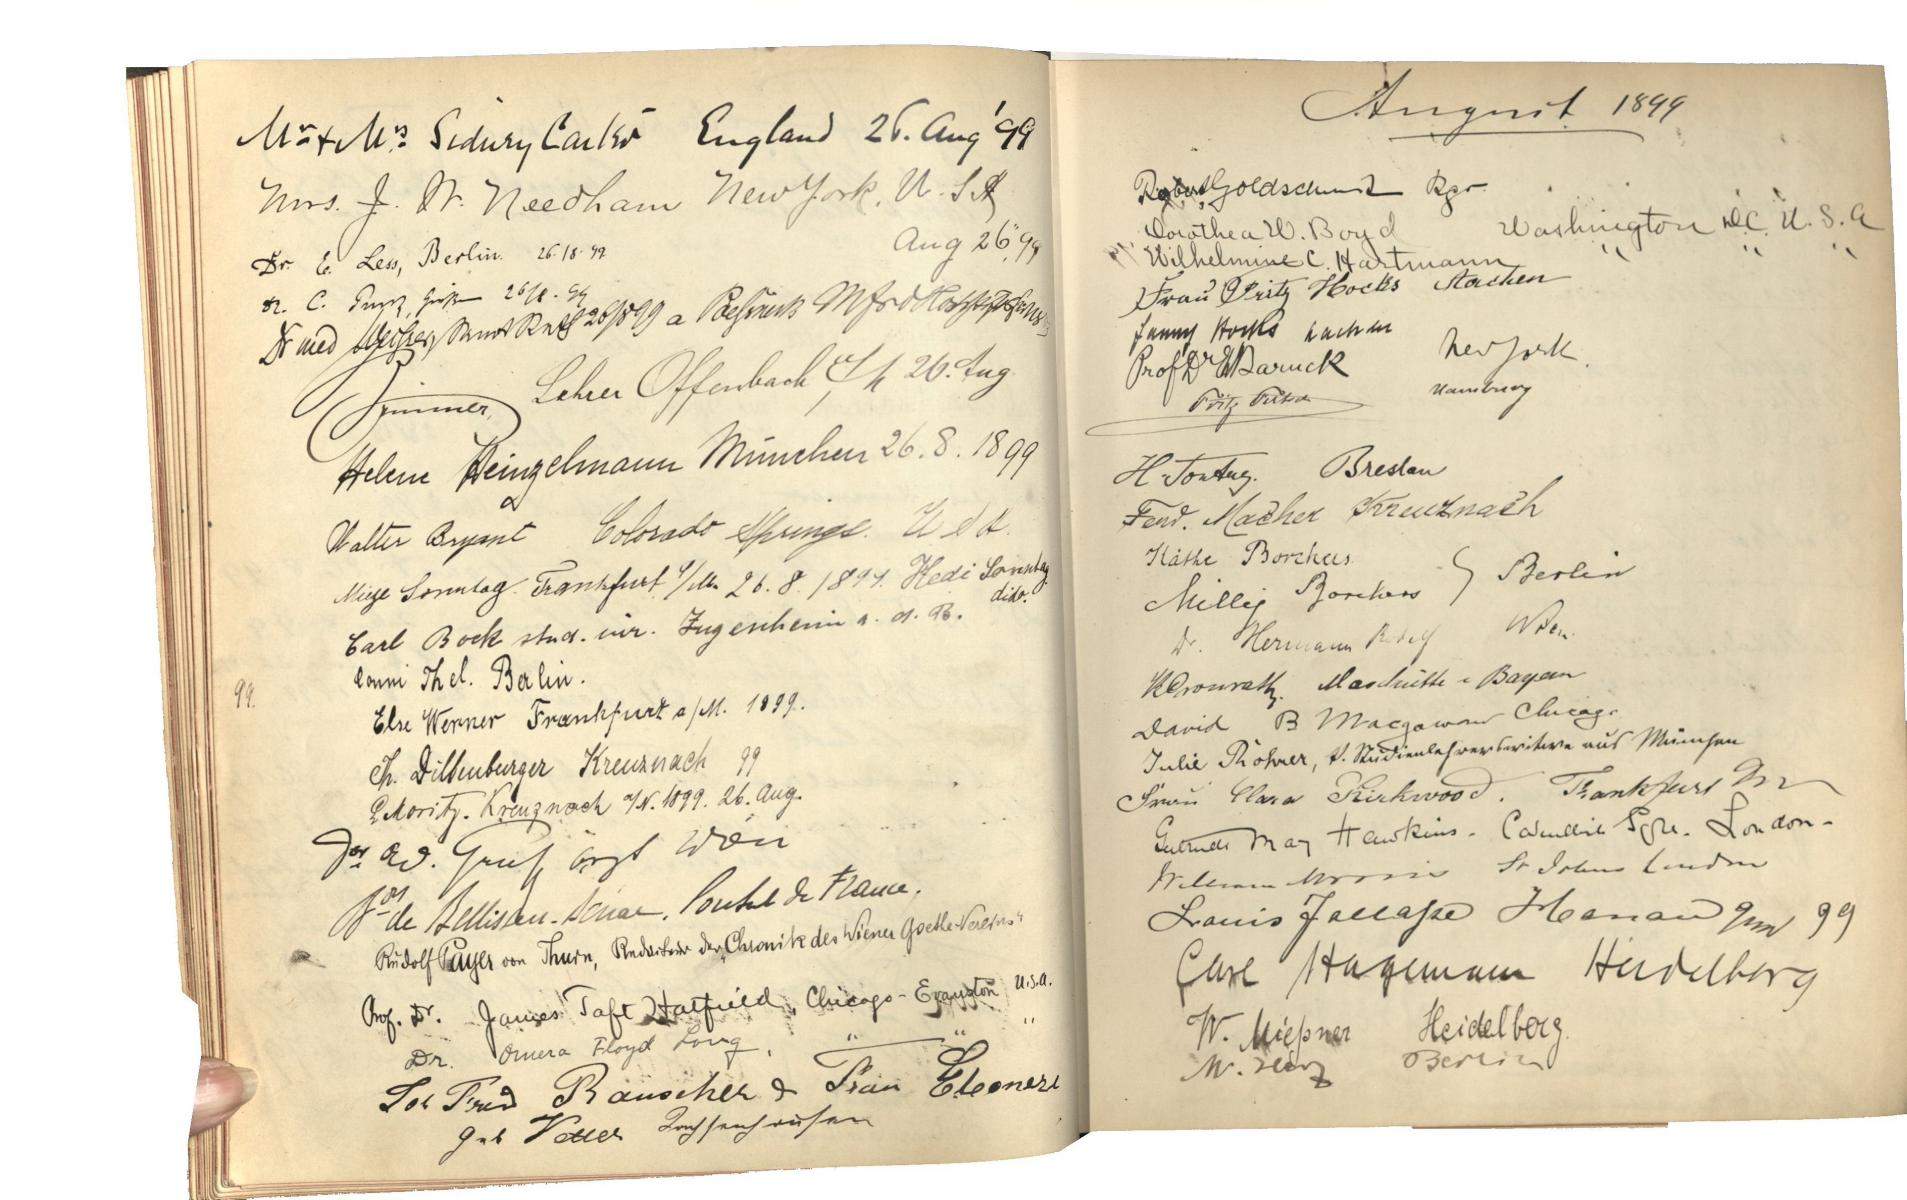 Mr & Mrs Sidney Carter England 26. Aug '99
Mrs. J. W. Needham New York, U.S.A
Aug 26", 99
Dr. E. Less, Berlin. 26/8. 99
Dr. C. 26/8. 99
Dr med 26/8 99 a
Lehrer Offenbach a/M 26. Aug
Simmer,
Helene Heinzelmann München 26.8.1899
Walter Bryant Colorado Springs. U S A.
Miege Sonntag Frankfurt a/M. 26.8.1899. Hedi Sonntag
dito.
Carl Bock stud. iur. Jugenheim a. d. B.
Thel. Berlin.
99.
Else Werner Frankfurt a/M. 1899.
Th. Dillenburger Kreuznach 99
P. Moritz. Kreuznach a/N. 1899. 26. Aug.
Dr Ed. Arzt Wien
de Consul de France.
Rudolf Payer von Thurn, Redacteur der „Chronik des Wiener Goethe-Vereins"
Prof. Dr. James Taft Hatfield, Chicago-Evanston U.S.A.
Dr. Omera Floyd Long, " " "
Fred Rauscher & Frau Eleonere
geb Vetter Sachsenhausen
August 1899
Robert Goldschmidt
Dorothea W. Boyd Washington D.C. U.S.A
Wilhelmine C. Hartmann " " "
Frau Fritz Hocks Aachen
Fanny Hocks Aachen
Prof Dr Baruck New York.
Fritz Hamburg
H. Sontag. Breslau
Ferd. Macher Kreuznach
Käthe Borchers
Milly Borchers } Berlin
Dr. Hermann Wien.
Bayern
David B Chicago
Julie Rohrer, k. Studienlehrerswitwe aus München
Frau Clara Kirkwood. Frankfurt M
Gertrude May Hawkins. London.
William Morris St Johns London
Louis Hanau 99
Carl Hagemann Heidelberg
W. Mießner Heidelberg.
M. Berlin